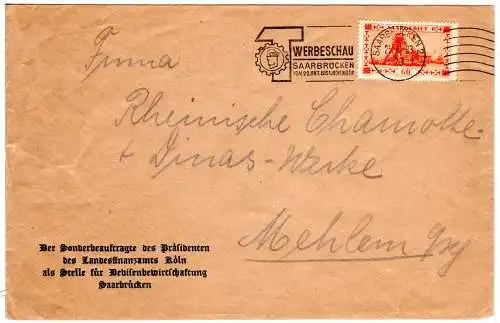 WERBESCHAU
SAARBRÜCKEN
SAARGEBIET
SAARBRÜCKEN
60
Firma
Rheinische Chamotte-
+ Dinas-Werke
Mehlem
Der Sonderbeauftragte des Präsidenten
des Landesfinanzamts Köln
als Stelle für Devisenbewirtschaftung
Saarbrücken